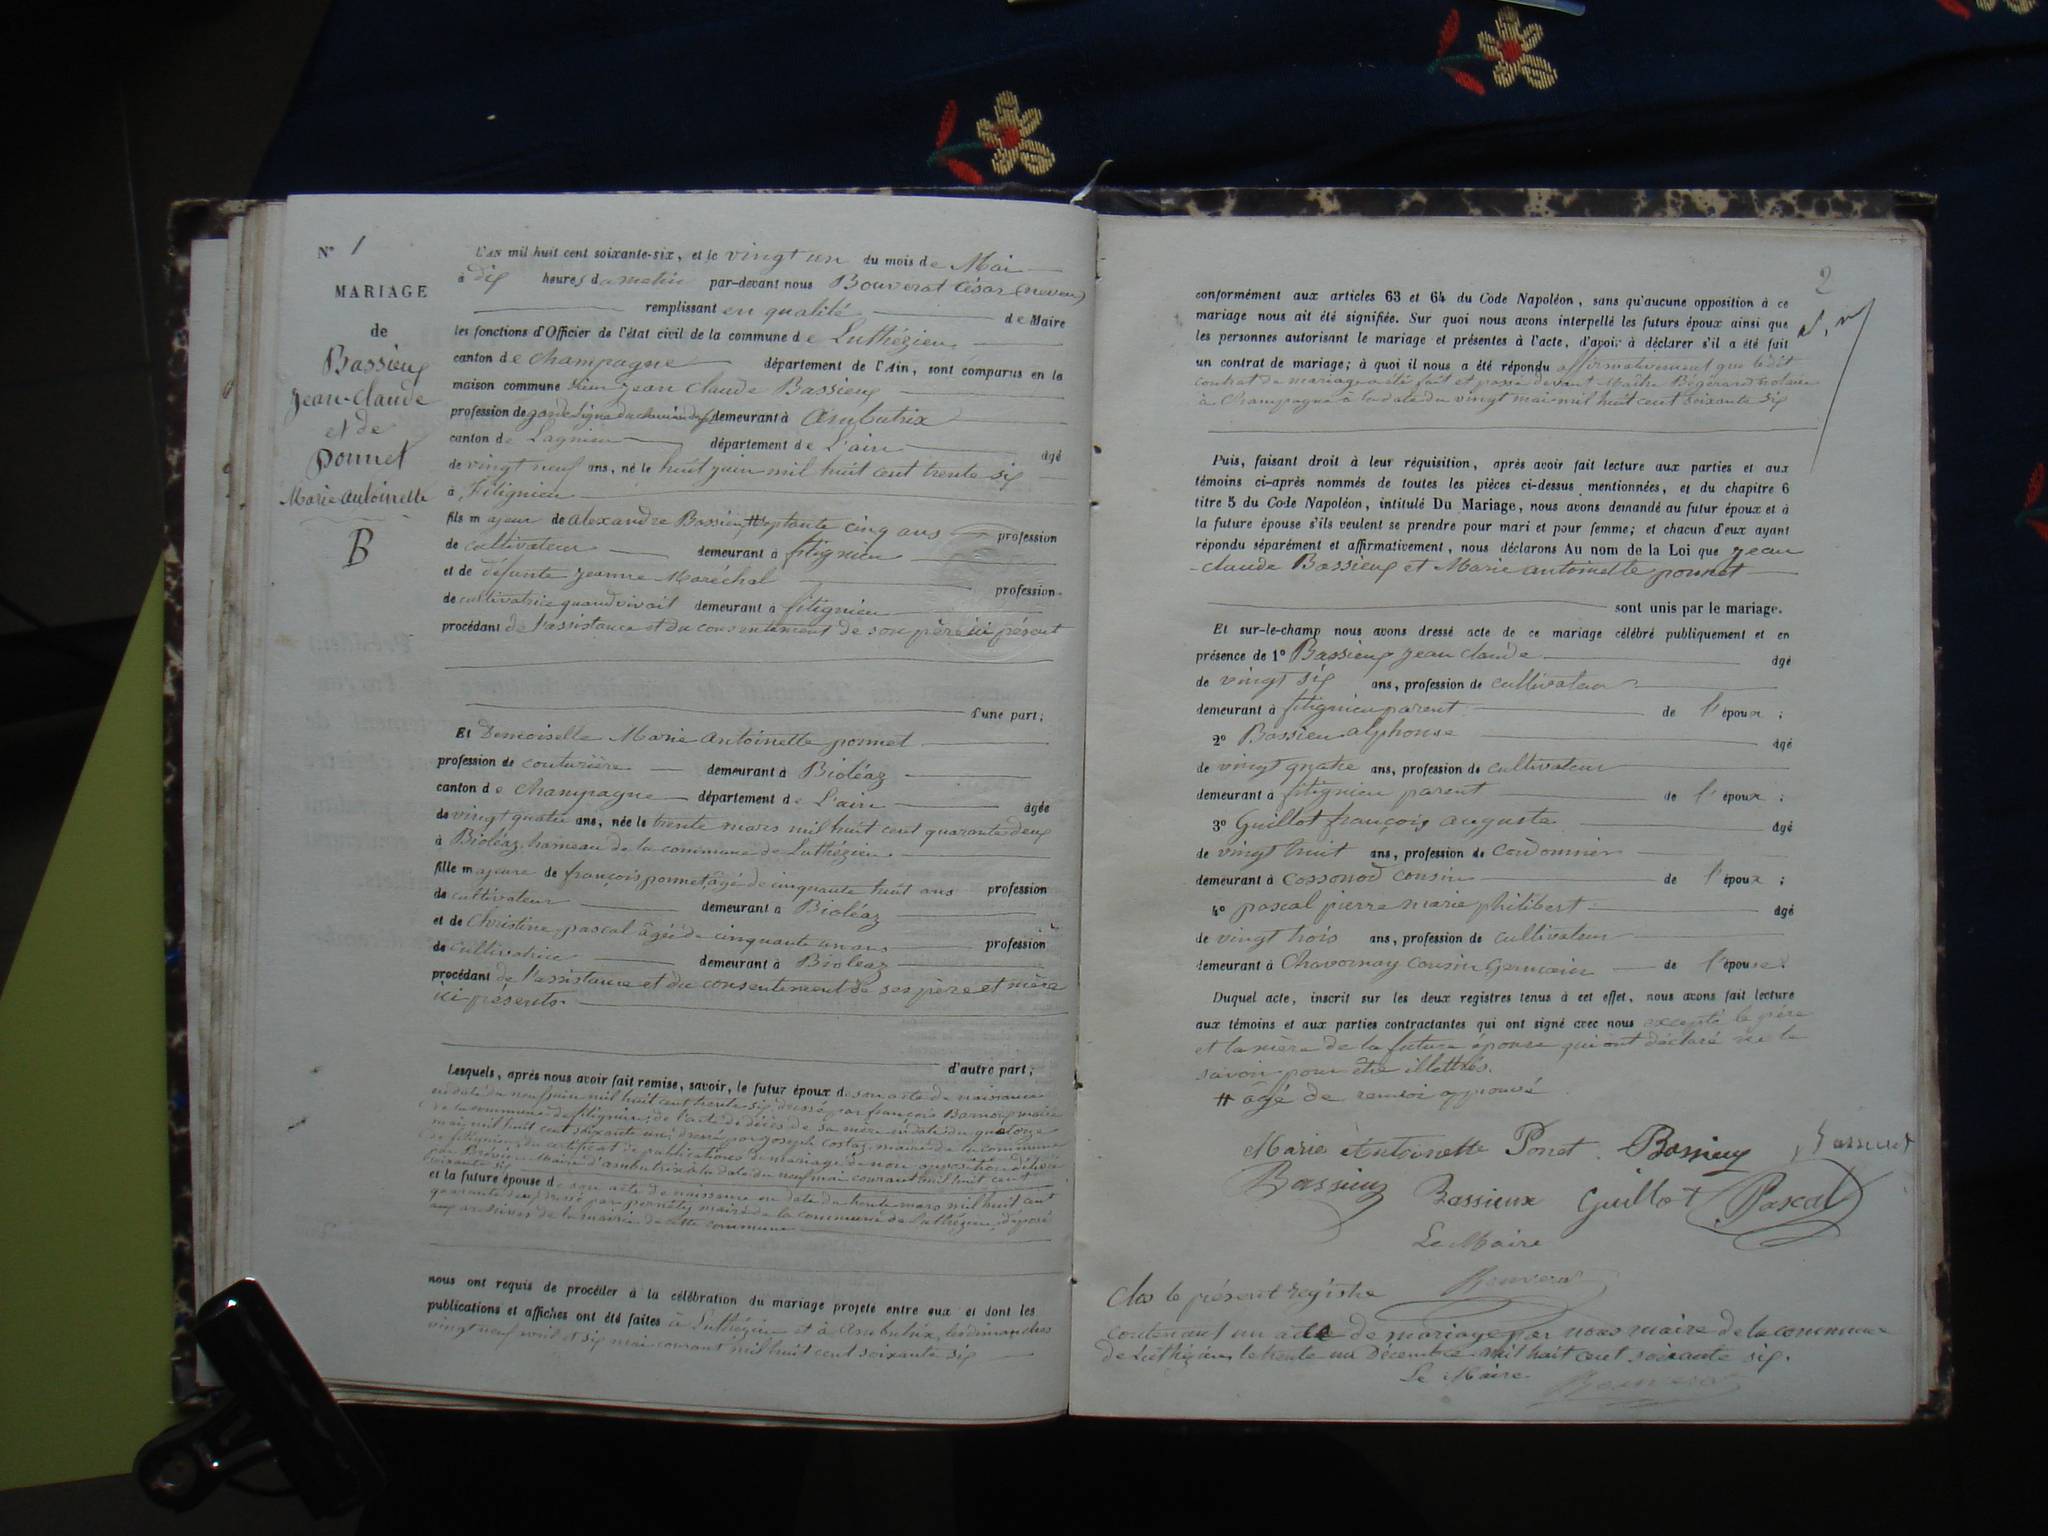 N° 1
MARIAGE
de
Bassieux
Jean-Claude
et de
Ponnet
Marie antoinette
B
L'AN mil huit cent soixante-six, et le vingt un du mois de Mai
à dix heures du matin par-devant nous Bouverat César (neveu)
remplissant en qualité de Maire
les fonctions d'Officier de l'état civil de la commune de Luthézieu
canton de Champagne département de l'Ain, sont comparus en la
maison commune sieur Jean Claude Bassieux
profession de garde ligne du chemin de fer demeurant à Ambutrix
canton de Lagnieu département de L'ain âgé
de vingt neuf ans, né le huit juin mil huit cent trente six
à fitignieu
fils majeur de alexandre Bassieux # septante cinq ans profession
de cultivateur demeurant à fitignieu
et de défunte Jeanne Maréchal profession
de cultivatrice quand vivait demeurant à fitignieu
procédant de l'assistance et du consentement de son père ici présent
d'une part;
Et Demoiselle Marie antoinette ponnet
profession de couturière demeurant à Bioléaz
canton de Champagne département de L'ain âgée
de vingt quatre ans, née le trente mars mil huit cent quarante deux
à Bioléaz hameau de la commune de Luthézieu
fille majeure de françois ponnet, âgé de cinquante huit ans profession
de cultivateur demeurant à Bioléaz
et de Christine pascal âgée de cinquante un ans profession
de cultivatrice demeurant à Bioléaz
procédant de l'assistance et du consentement de ses père et mère
ici présents.
d'autre part;
Lesquels, après nous avoir fait remise, savoir, le futur époux de son acte de naissance
en date du neuf juin mil huit cent trente six dressé par françois maire
de la commune de fitignieu, de l'acte de décès de sa mère en date du quatorze
mai mil huit cent soixante un, dressé par Joseph Costaz maire de la commune
de fitignieu, du certificat de publications de mariage de non opposition délivré
par Maire d'ambutrix à la date du neuf mai courant mil huit cent
soixante six
et la future épouse de son acte de naissance en date du trente mars mil huit cent
quarante deux dressé par maire de la commune de Luthézieu, déposé
aux archives de la mairie de cette commune
nous ont requis de procéder à la célébration du mariage projeté entre eux et dont les
publications et affiches ont été faites à Luthézieu et à Ambutrix, les dimanches
vingt neuf avril et six mai courant mil huit cent soixante six
2
conformément aux articles 63 et 64 du Code Napoléon, sans qu'aucune opposition à ce
mariage nous ait été signifiée. Sur quoi nous avons interpellé les futurs époux ainsi que
les personnes autorisant le mariage et présentes à l'acte, d'avoir à déclarer s'il a été fait
un contrat de mariage; à quoi il nous a été répondu affirmativement que le dit
contrat de mariage a été fait et passé devant Maître notaire
à Champagne à la date du vingt mai mil huit cent soixante six
Puis, faisant droit à leur réquisition, après avoir fait lecture aux parties et aux
témoins ci-après nommés de toutes les pièces ci-dessus mentionnées, et du chapitre 6
titre 5 du Code Napoléon, intitulé Du Mariage, nous avons demandé au futur époux et à
la future épouse s'ils veulent se prendre pour mari et pour femme; et chacun d'eux ayant
répondu séparément et affirmativement, nous déclarons Au nom de la Loi que Jean
Claude Bassieux et Marie antoinette ponnet
sont unis par le mariage.
Et sur-le-champ nous avons dressé acte de ce mariage célébré publiquement et en
présence de 1° Bassieux Jean Claude âgé
de vingt six ans, profession de cultivateur
demeurant à fitignieu parent de l'époux;
2° Bassieu alphonse âgé
de vingt quatre ans, profession de cultivateur
demeurant à fitignieu parent de l'époux;
3° Guillot françois auguste âgé
de vingt huit ans, profession de cordonnier
demeurant à Cossonod cousin de l'époux;
4° pascal pierre marie philibert âgé
de vingt trois ans, profession de cultivateur
demeurant à Chavornay cousin Germain de l'épouse.
Duquel acte, inscrit sur les deux registres tenus à cet effet, nous avons fait lecture
aux témoins et aux parties contractantes qui ont signé avec nous excepté le père
et la mère de la future épouse qui ont déclaré ne le
savoir pour être illettrés.
# âgé de renvoi approuvé
Marie Antoinette Ponet Bassieux
Bassieux Bassieux Guillot Pascal
Le Maire
Bouverat
Clos le présent registre
contenant un acte de mariage par nous maire de la commune
de Luthézieu, le trente un Décembre mil huit cent soixante six.
Le Maire
Bouverat